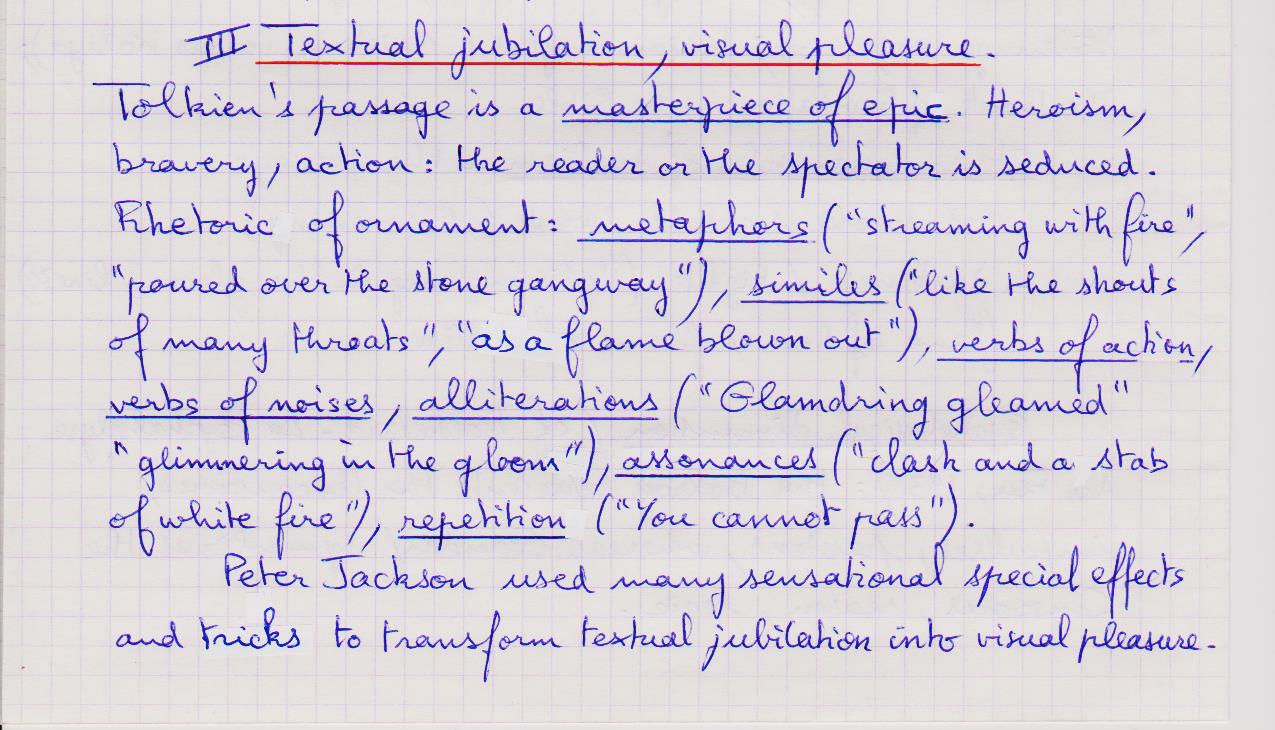 III Textual jubilation, visual pleasure.
Tolkien's passage is a masterpiece of epic. Heroism,
bravery, action: the reader or the spectator is seduced.
Rhetoric of ornament: metaphors ("streaming with fire",
"poured over the stone gangway"), similes ("like the shouts
of many throats", "as a flame blown out"), verbs of action,
verbs of noises, alliterations ("Glamdring gleamed"
"glimmering in the gloom"), assonances ("clash and a stab
of white fire"), repetition ("You cannot pass").
Peter Jackson used many sensational special effects
and tricks to transform textual jubilation into visual pleasure.